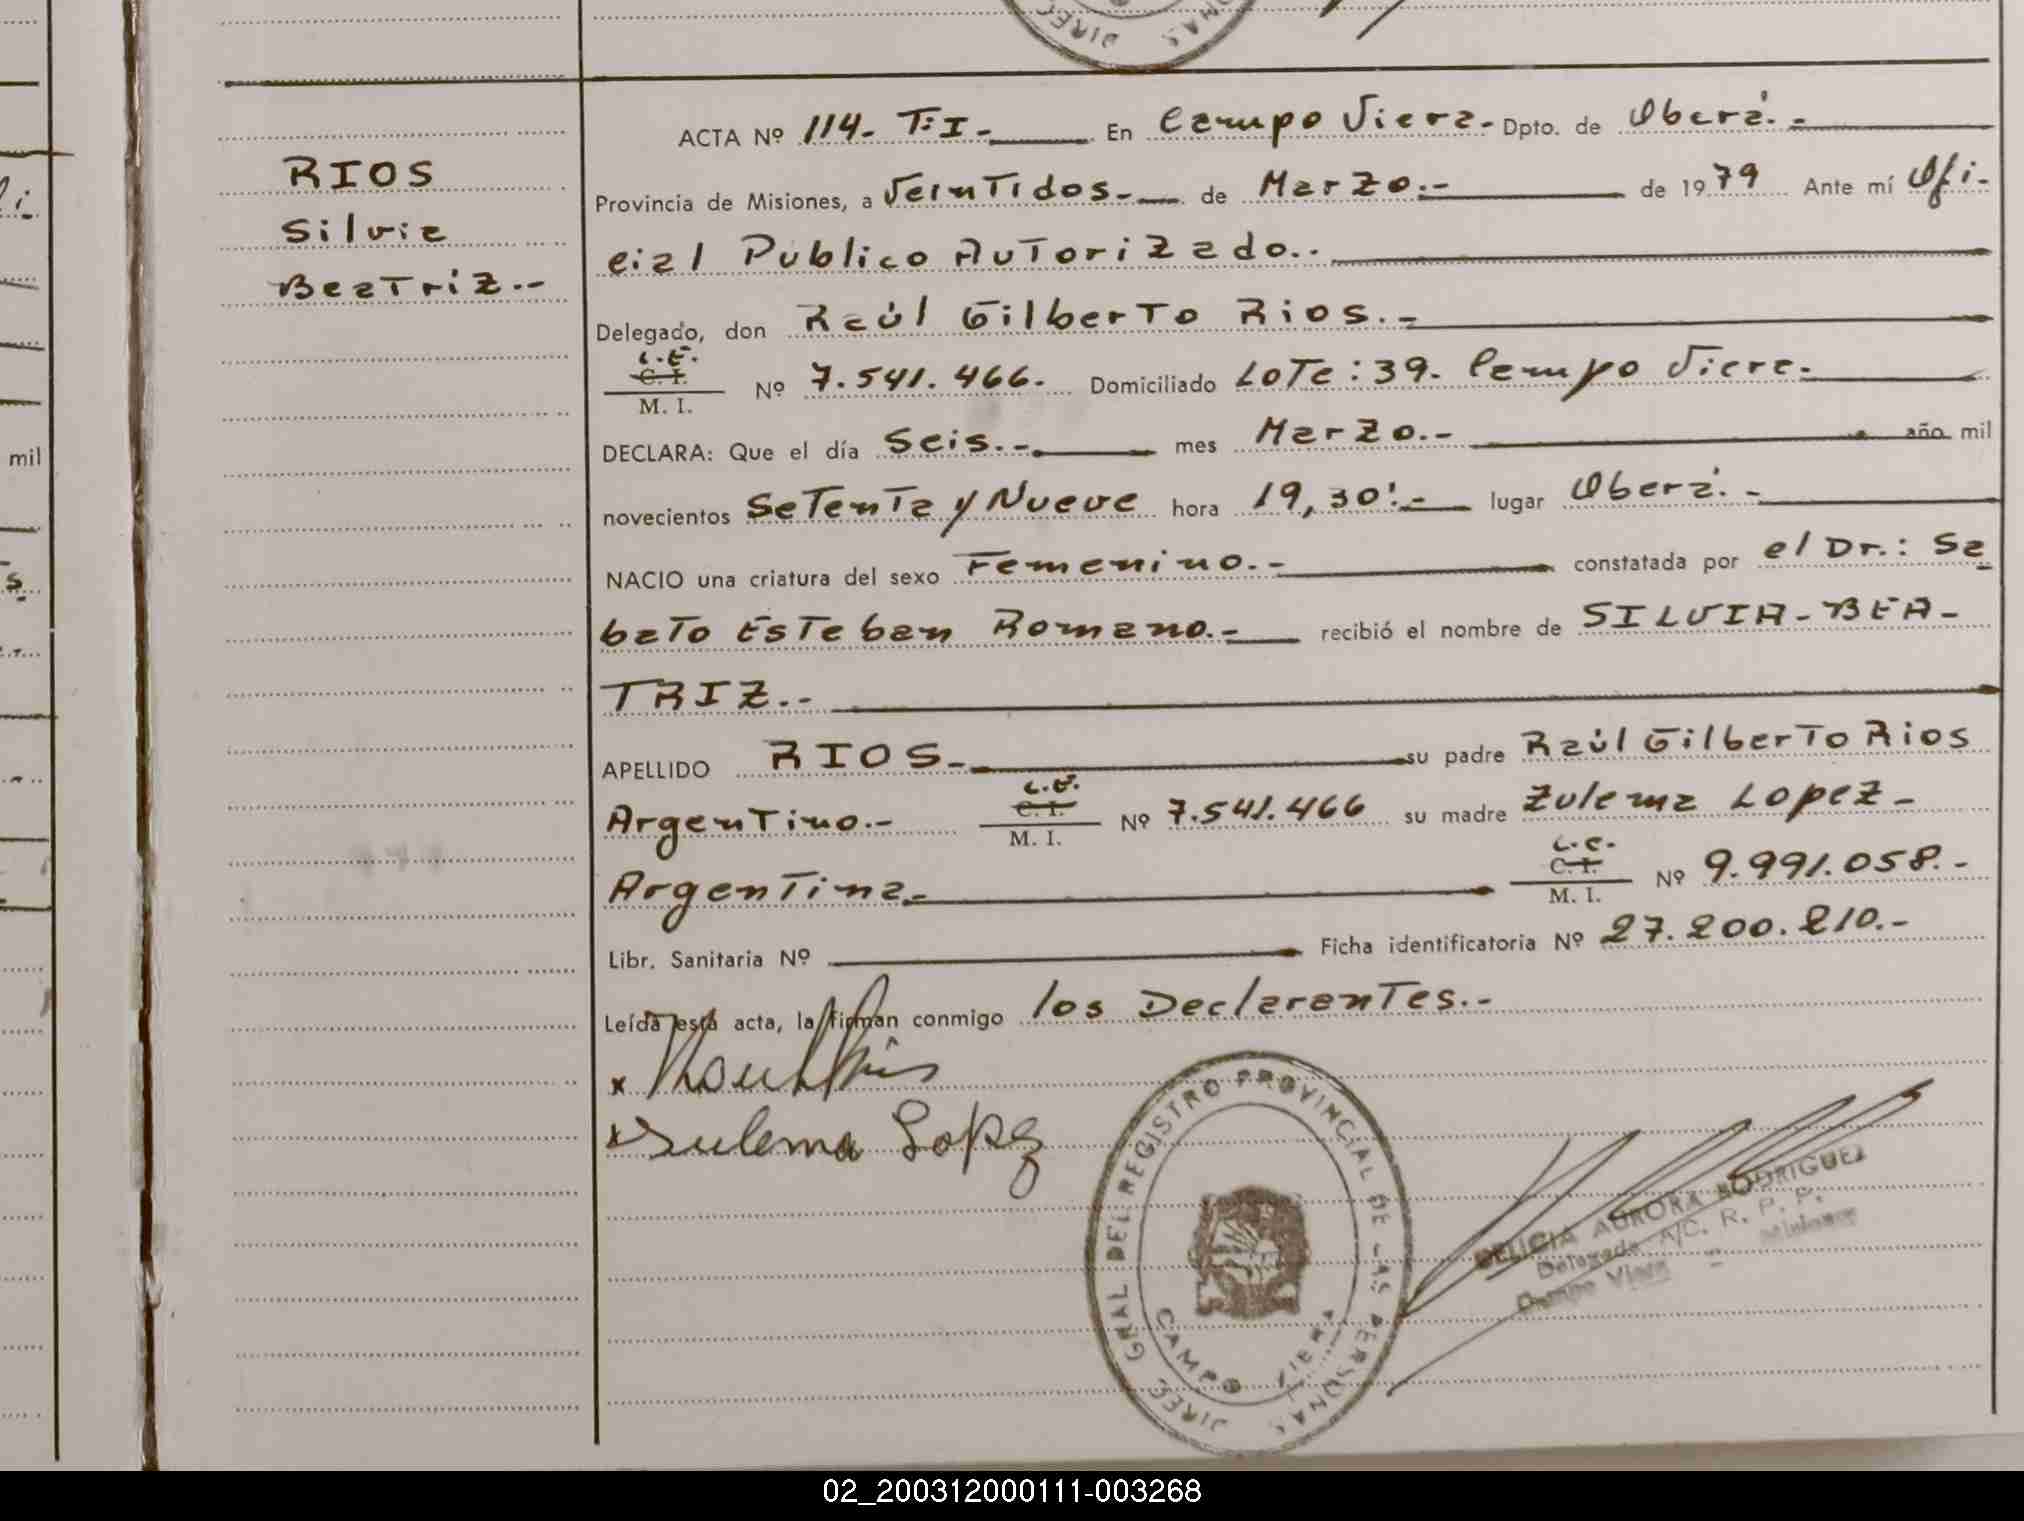 RIOS
Silvia
Beatriz.-
ACTA Nº 114. T:I.- En Campo Viera.- Dpto. de Oberá.-
Provincia de Misiones, a Veintidos.- de Marzo.- de 1979 Ante mí Ofi-
cial Publico Autorizado.-
Delegado, don Raúl Gilberto Rios.-
L.E.
C. I.
M. I.
Nº 7.541.466.- Domiciliado Lote: 39. Campo Viera.
DECLARA: Que el día Seis.- mes Marzo.- año mil
novecientos Setenta y Nueve hora 19,30'.- lugar Oberá.-
NACIO una criatura del sexo Femenino.- constatada por el Dr.: Sa
bato Esteban Romano.- recibió el nombre de SILVIA-BEA-
TRIZ.-
APELLIDO RIOS.- su padre Raúl Gilberto Rios
Argentino.- L.E. C. I. M. I. Nº 7.541.466 su madre Zulema Lopez-
Argentina.- L.C. C. I. M. I. Nº 9.991.058.-
Libr. Sanitaria Nº Ficha identificatoria Nº 27.200.210.-
Leída esta acta, la firman conmigo los Declarantes.-
x Raul Rios
x Zulema Lopez
DIREC. GRAL DEL REGISTRO PROVINCIAL DE LAS PERSONAS
CAMPO VIERA
DELICIA AURORA RODRIGUEZ
Delegada A/C. R. P. P.
Campo Viera - Misiones
mil
02_200312000111-003268